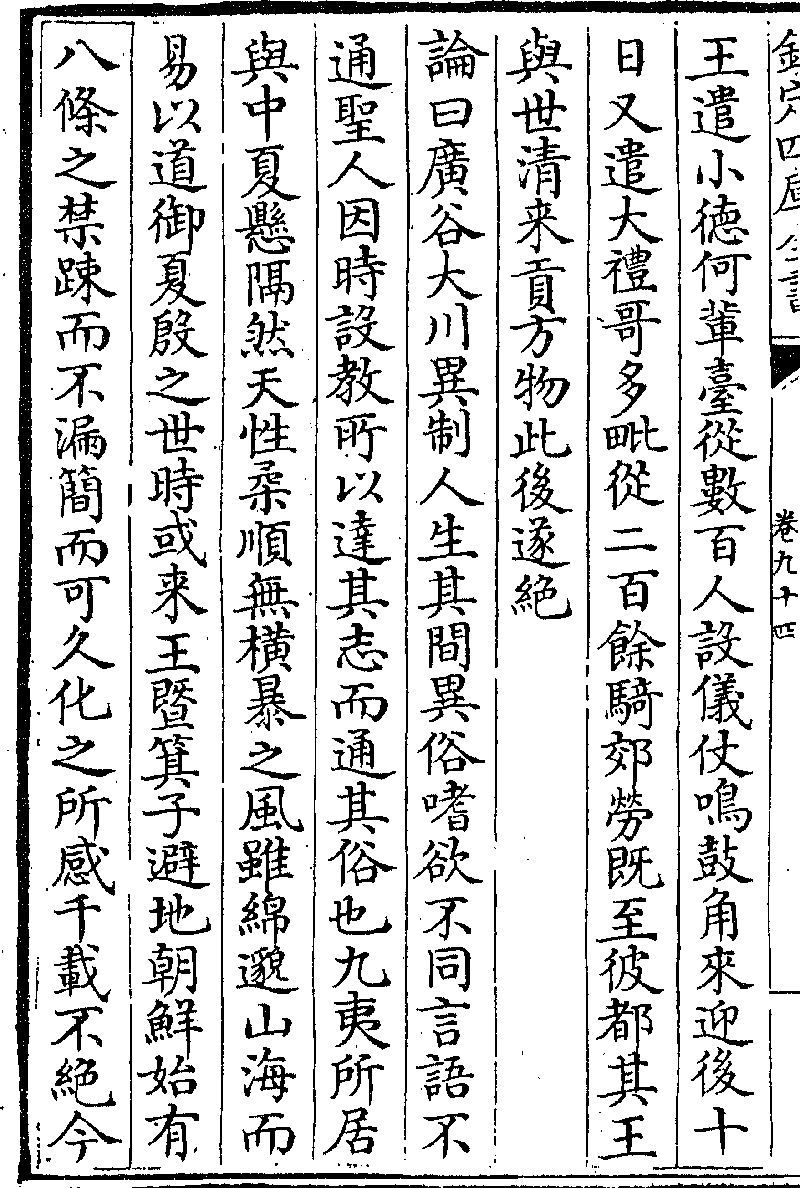 欽定四庫全書
卷九十四
王遣小德何輩臺從數百人設儀仗鳴鼓角來迎後十
日又遣大禮哥多毗從二百餘騎郊勞既至彼都其王
與世清来貢方物此後遂絶
論曰廣谷大川異制人生其間異俗嗜欲不同言語不
通聖人因時設教所以達其志而通其俗也九夷所居
與中夏懸隔然天性柔順無橫暴之風雖綿邈山海而
易以道御夏殷之世時或来王暨箕子避地朝鮮始有
八條之禁踈而不漏簡而可久化之所感千載不絶今